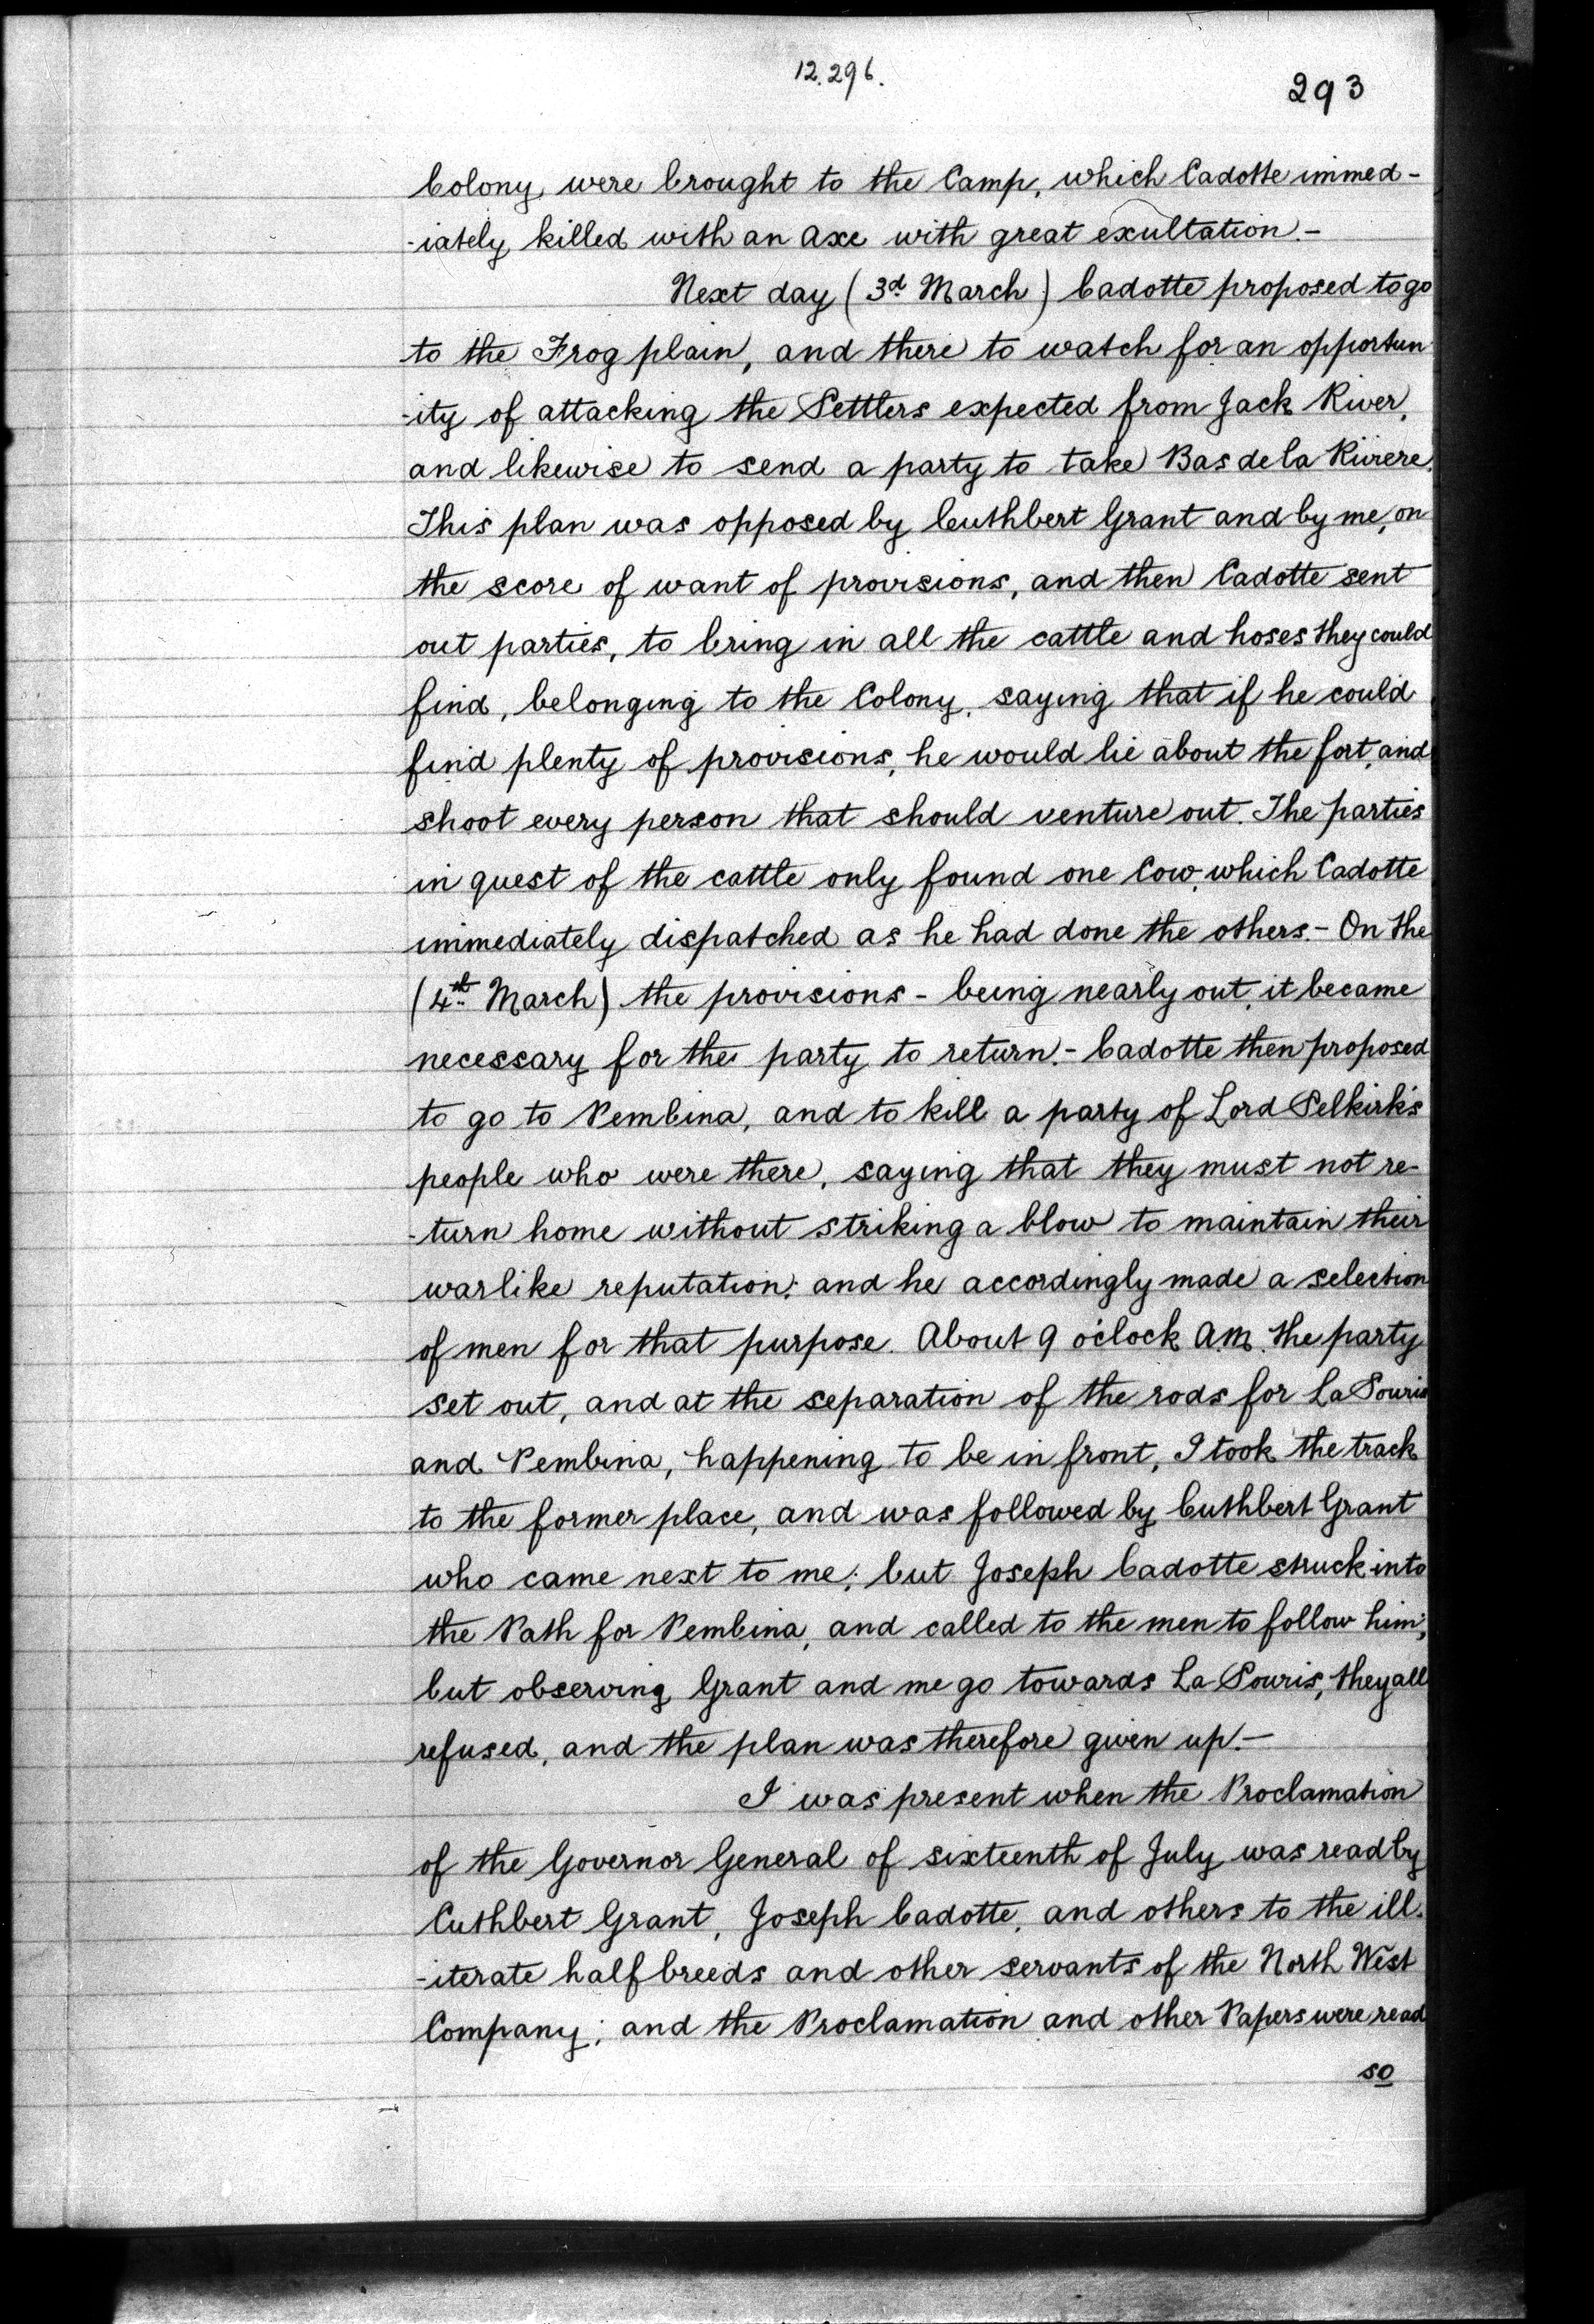 12.296.
293
Colony, were brought to the Camp, which Cadotte immed-
-iately killed with an axe with great exultation.-
Next day (3d March) Cadotte proposed to go
to the Frog plain, and there to watch for an opportun
-ity of attacking the Settlers expected from Jack River,
and likewise to send a party to take Bas de la Rivere.
This plan was opposed by Cuthbert Grant and by me, on
the score of want of provisions, and then Cadotte sent
out parties, to bring in all the cattle and hoses they could
find, belonging to the Colony, saying that if he could
find plenty of provisions, he would lie about the fort, and
shoot every person that should venture out. The parties
in quest of the cattle only found one Cow, which Cadotte
immediately dispatched as he had done the others.- On the
(4th March) the provisions - being nearly out, it became
necessary for the party to return.- Cadotte then proposed
to go to Pembina, and to kill a party of Lord Selkirk's
people who were there, saying that they must not re-
-turn home without striking a blow to maintain their
warlike reputation; and he accordingly made a selection
of men for that purpose. About 9 o'clock A.M. the party
set out, and at the separation of the rods for La Souris
and Pembina, happening to be in front, I took the track
to the former place, and was followed by Cuthbert Grant
who came next to me; but Joseph Cadotte struck into
the Path for Pembina, and called to the men to follow him;
but observing Grant and me go towards La Souris, they all
refused, and the plan was therefore given up.-
I was present when the Proclamation
of the Governor General of sixteenth of July was read by
Cuthbert Grant, Joseph Cadotte, and others to the ill-
-iterate half breeds and other servants of the North West
Company; and the Proclamation and other Papers were read
so